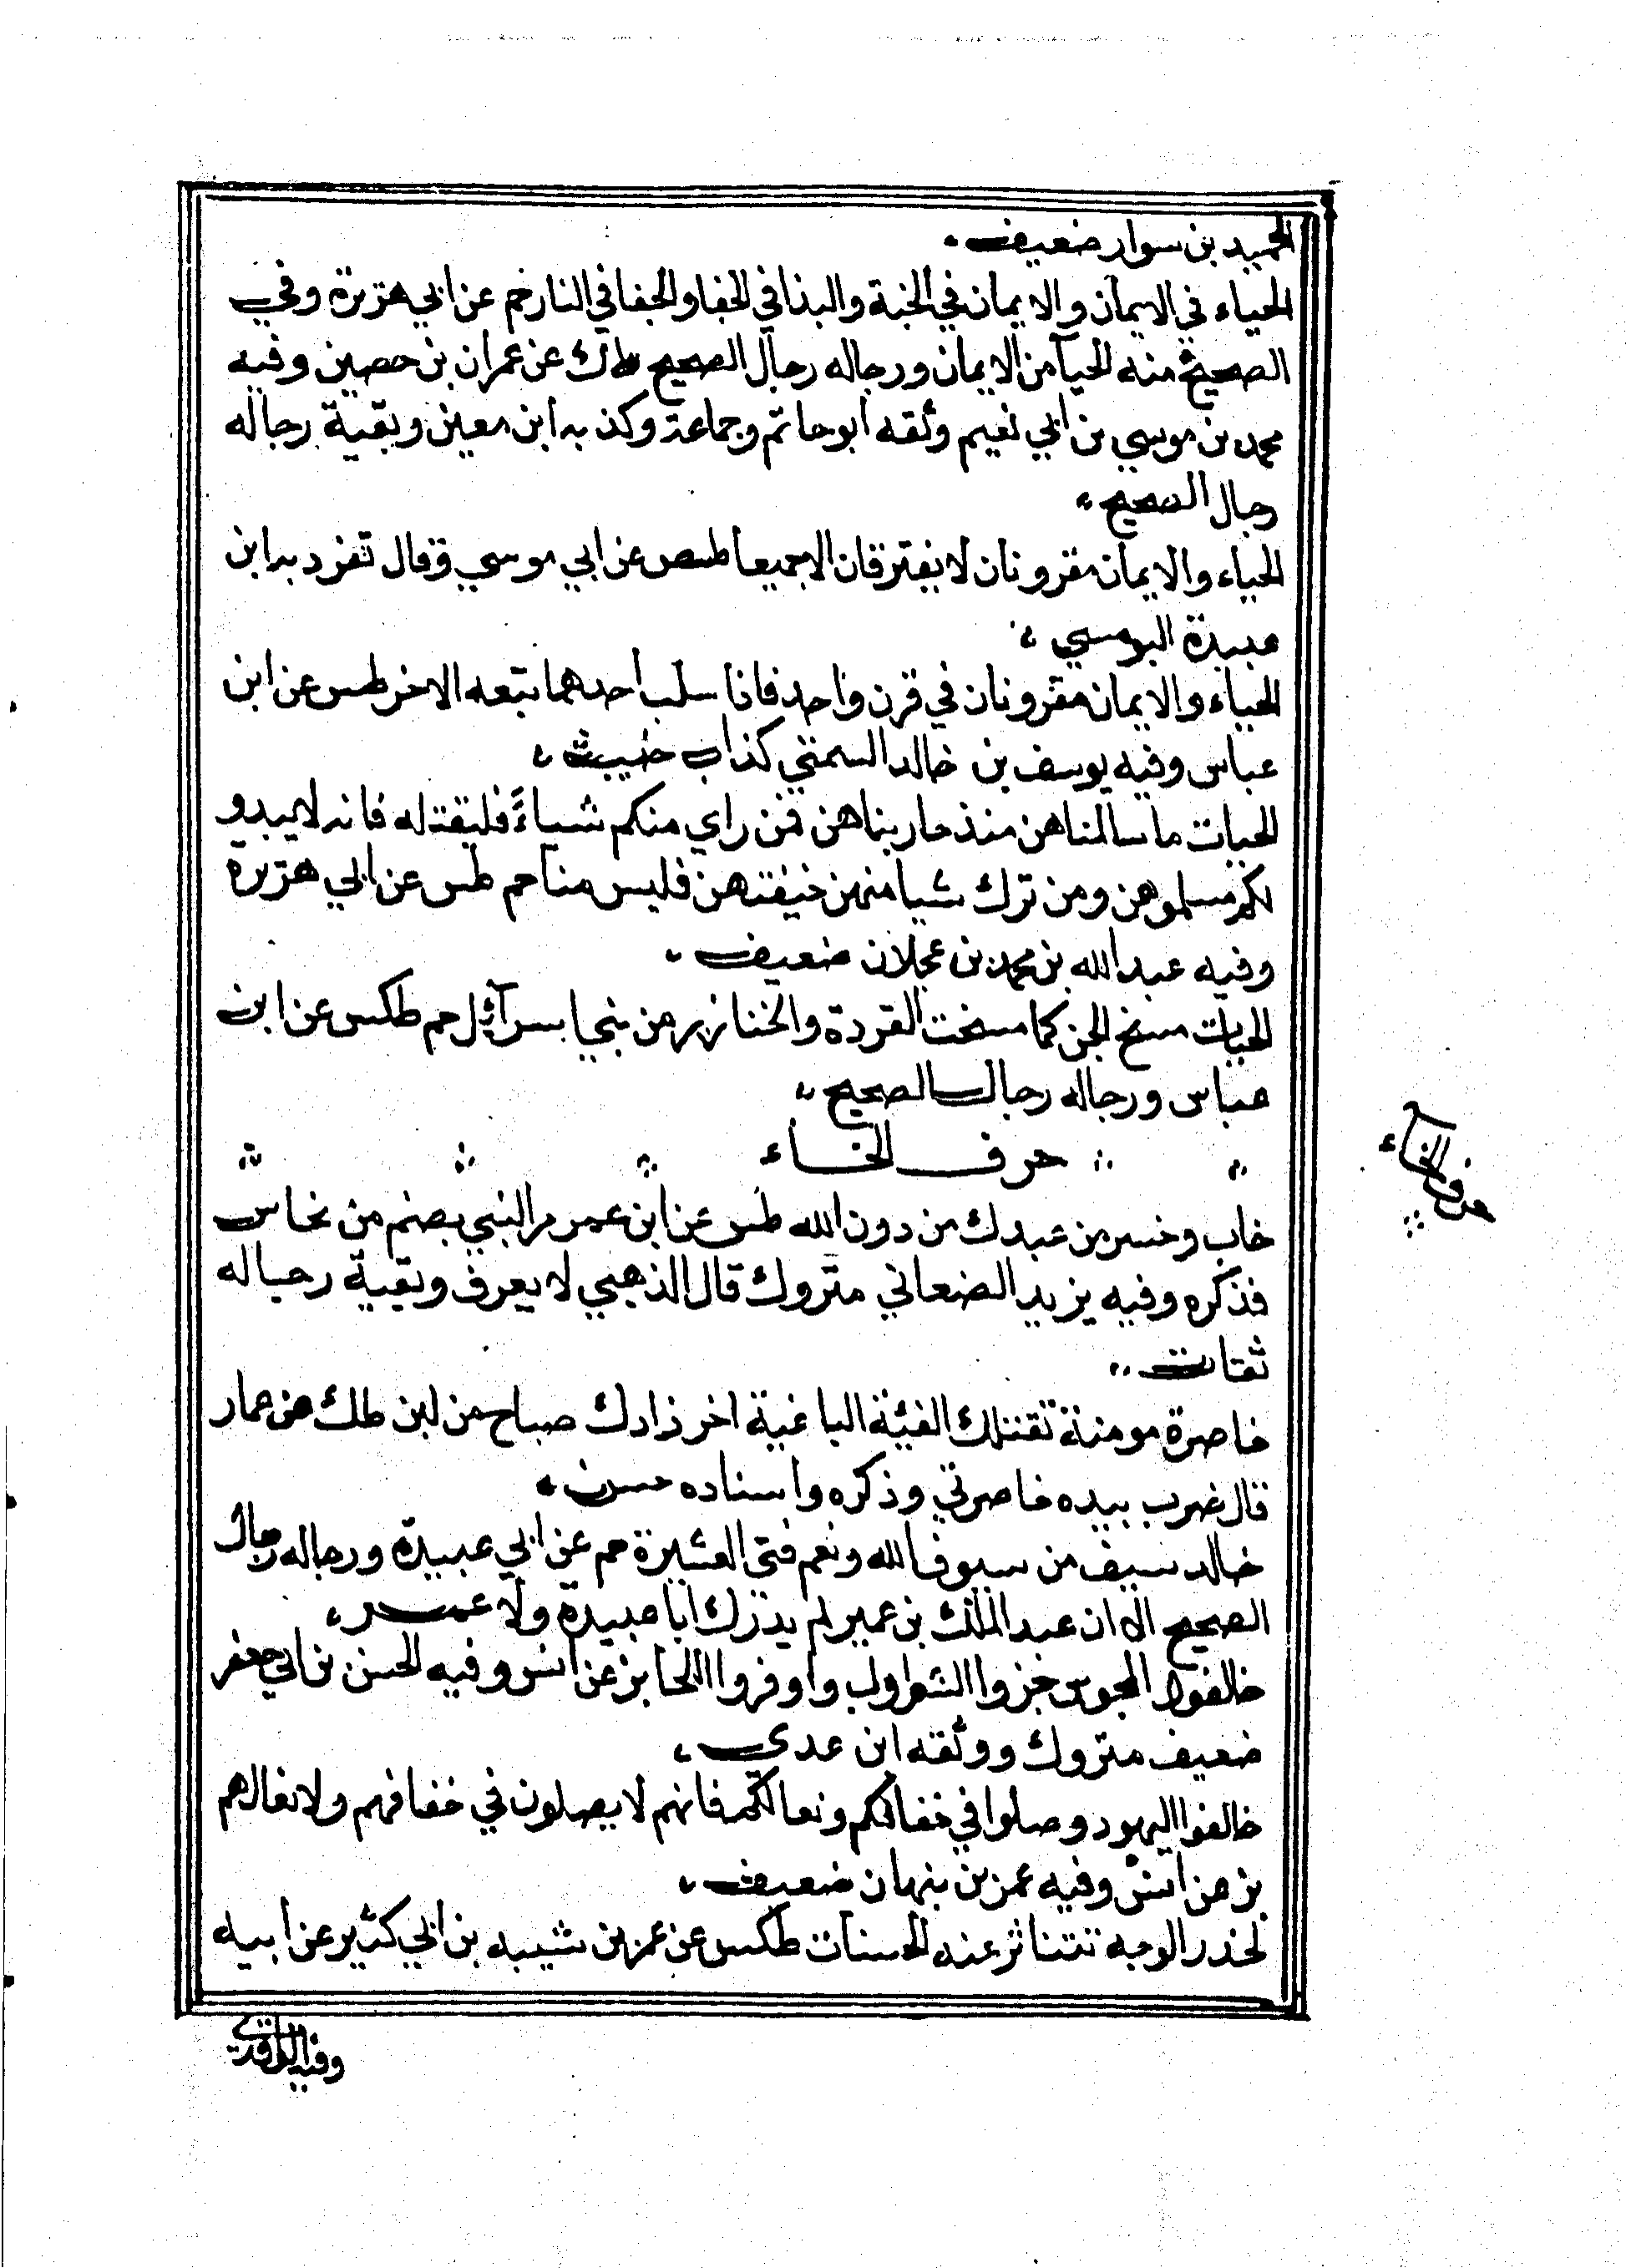 الحميد بن سوار ضعيف
الحياء في الايمان والايمان في الجنة والبذا في الجفا والجفا في النار حم عن ابي هريرة وفي
الصحيح منه الحيآ من الايمان ورجاله رجال الصحيح طك عن عمران بن حصين وفيه
محمد بن موسي بن ابي نعيم وثقه ابو حاتم وجماعة وكذبه ابن معين وبقية رجاله
رجال الصحيح
الحياء والايمان مقرونان لا يفترقان الا جميعا طسص عن ابي موسي وقال تفرد به ابن
عبيدة البوسي
الحياء والايمان مقرونان في قرن واحد فاذا سلب احدهما تبعه الاخر طس عن ابن
عباس وفيه يوسف بن خالد السمتي كذاب خبيث
الحيات ما سالمناهن منذ حاربناهن فمن راي منكم شياءً فليقتله فانه لا يبدو
لكم مسلموهن ومن ترك شيا منهن خيفتهن فليس منا حم طس عن ابي هريرة
وفيه عبد الله بن محمد بن عجلان ضعيف
الحيات مسخ الجن كما مسخت القردة والخنازير من بني ايسرآئل حم طكس عن ابن
عباس ورجاله رجال الصحيح
حرف الخاء
حرف الخاء
خاب وخسر من عبدك من دون الله طس عن ابن عمر مر النبي بصنم من نحاس
فذكره وفيه يزيد الصنعاني متروك قال الذهبي لا يعرف وبقية رجاله
ثقات
خاصرة مومنة تقتلك الفيئة الباغية اخر زادك صباح من لبن طك عن عمار
قال ضرب بيده خاصرتي وذكره واسناده حسن
خالد سيف من سيوف الله ونعم فتى العشيرة حم عن ابي عبيدة ورجاله رجال
الصحيح الا ان عبد الملك بن عمير لم يدرك ابا عبيدة ولا عمر
خالفوا المجوس جزوا الشوارب واوفروا اللحا بز عن انس وفيه الحسن بن ابي جعفر
ضعيف متروك ووثقه ابن عدي
خالفوا اليهود وصلوا في خفافكم ونعالكم فانهم لا يصلون في خفافهم ولا نعالهم
بز عن انس وفيه عمر بن بنهان ضعيف
لخدر الوجه تتناثر عنه الحسنات طكس عن عمر بن شيبه بن ابي كثير عن ابيه
وفيه الواقدي